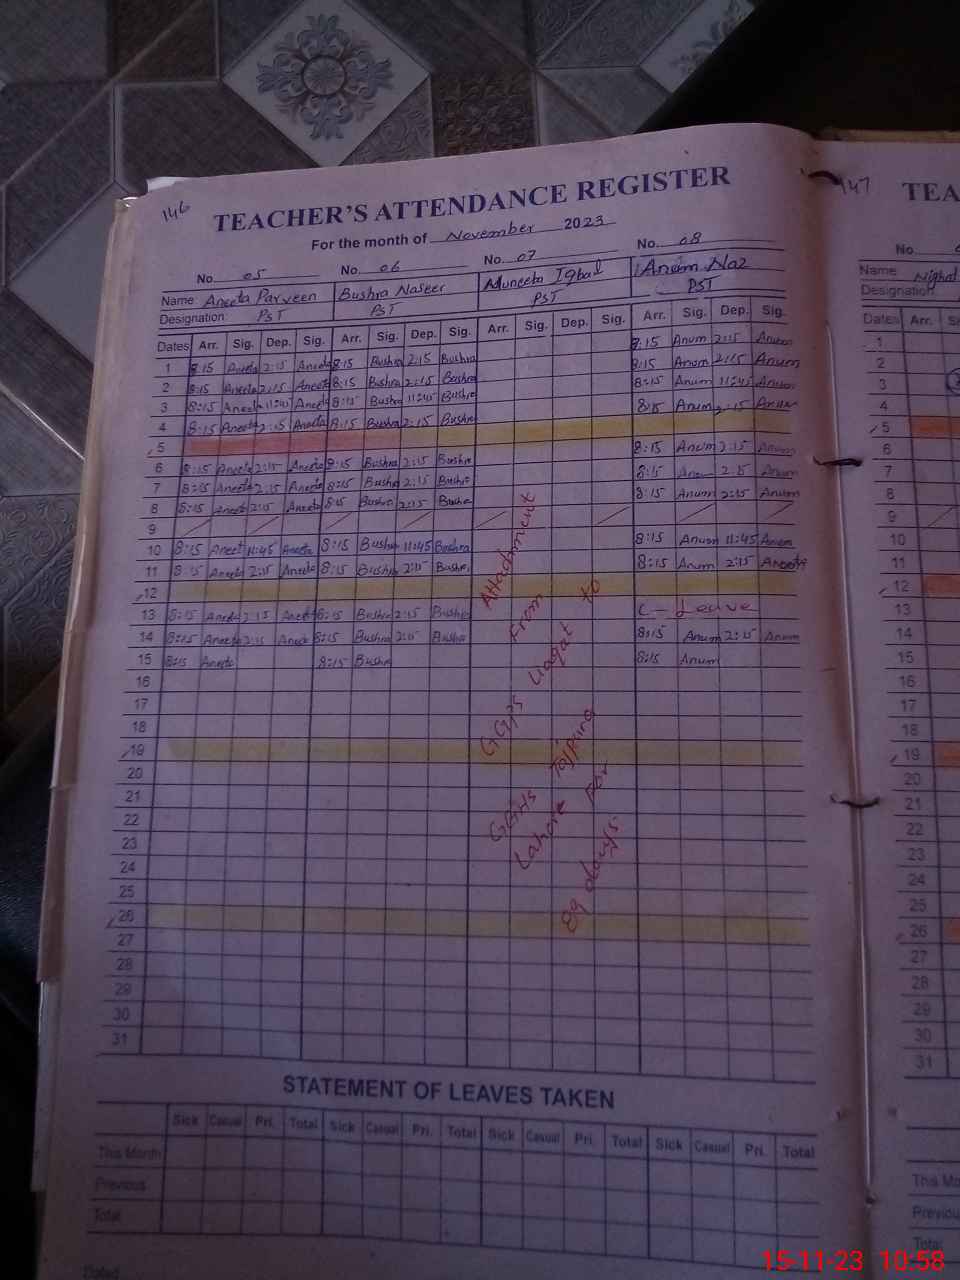 146
TEACHER'S ATTENDANCE REGISTER
For the month of November 2023
No. 05 No. 06 No. 07 No. 08
Name Aneeta Parveen Bushra Naseer Muneeba Iqbal Anum Naz
Designation: PST PST PST PST
Dates Arr. Sig. Dep. Sig. Arr. Sig. Dep. Sig. Arr. Sig. Dep. Sig. Arr. Sig. Dep. Sig.
1 8:15 Aneeta 2:15 Aneeta 8:15 Bushra 2:15 Bushra 8:15 Anum 2:15 Anum
2 8:15 Aneeta 2:15 Aneeta 8:15 Bushra 2:15 Bushra 8:15 Anum 2:15 Anum
3 8:15 Aneeta 11:45 Aneeta 8:15 Bushra 11:45 Bushra 8:15 Anum 11:45 Anum
4 8:15 Aneeta 2:15 Aneeta 8:15 Bushra 2:15 Bushra 8:15 Anum 2:15 Anum
5
6 8:15 Aneeta 2:15 Aneeta 8:15 Bushra 2:15 Bushra 8:15 Anum 2:15 Anum
7 8:15 Aneeta 2:15 Aneeta 8:15 Bushra 2:15 Bushra 8:15 Anum 2:15 Anum
8 8:15 Aneeta 2:15 Aneeta 8:15 Bushra 2:15 Bushra 8:15 Anum 2:15 Anum
9
10 8:15 Aneet 11:45 Aneeta 8:15 Bushra 11:45 Bushra 8:15 Anum 11:45 Anum
11 8:15 Aneeta 2:15 Aneeta 8:15 Bushra 2:15 Bushra 8:15 Anum 2:15
12
13 8:15 Aneeta 2:15 Aneeta 8:15 Bushra 2:15 Bushra C - Leave
14 8:15 Aneeta 2:15 Aneeta 8:15 Bushra 2:15 Bushra 8:15 Anum 2:15 Anum
15 8:15 Aneeta 8:15 Bushra 8:15 Anum
16
17
18
19
20
21
22
23
24
25
26
27
28
29
30
31
Attachment
From to
Liaqat
GGHS Tajpura
Lahore For
89 days
STATEMENT OF LEAVES TAKEN
Sick Casual Pri. Total Sick Casual Pri. Total Sick Casual Pri. Total Sick Casual Pri. Total
This Month
Previous
Total
Dated
147
TEA
No.
Name
Designation:
Dates Arr.
1
2
3
4
5
6
7
8
9
10
11
12
13
14
15
16
17
18
19
20
21
22
23
24
25
26
27
28
29
30
31
This Mo
Previou
Total
15-11-23 10:58